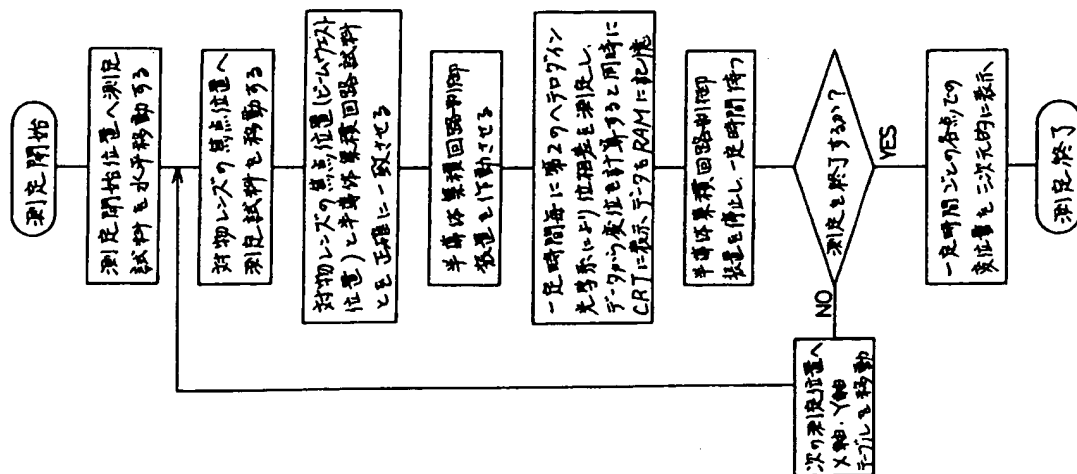 測定開始
測定開始位置へ測定
試料を水平移動する
対物レンズの焦点位置へ
測定試料を移動する
対物レンズの焦点位置(ビームウエスト
位置)と半導体集積回路試料
とを正確に一致させる
半導体集積回路制御
装置を作動させる
一定時間毎に第2のヘテロダイン
光学系により位相差を測定し、
データから変位を計算すると同時に
CRTに表示、データをRAMに記憶
半導体集積回路制御
装置を停止し一定時間待つ
測定を終了するか?
NO
YES
次の測定位置へ
X軸、Y軸
テーブルを移動
一定時間ごとの各点での
変位量を三次元的に表示
測定終了